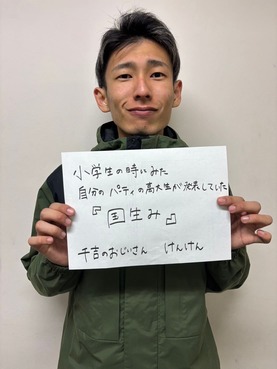 小学生の時いみた
自分のパティの高大生が発表してした
『国生み』
千吉のおじいさん けんけん